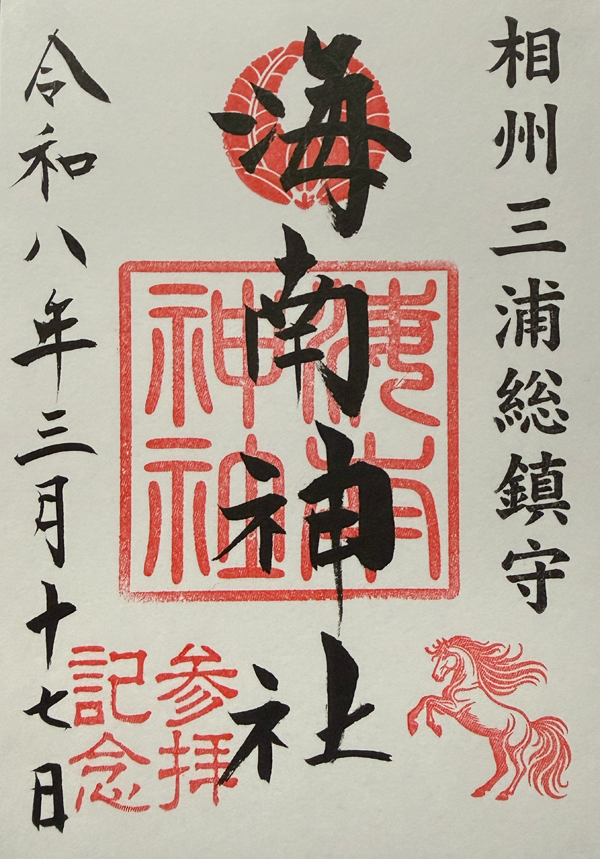 相州三浦総鎮守
海南神社
海南神社
参拝記念
令和八年三月十七日